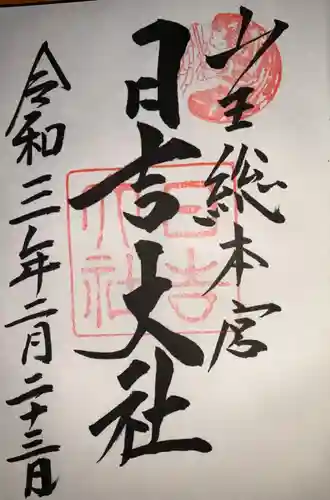 山王総本宮
日吉大社
令和三年二月二十三日
日吉大社